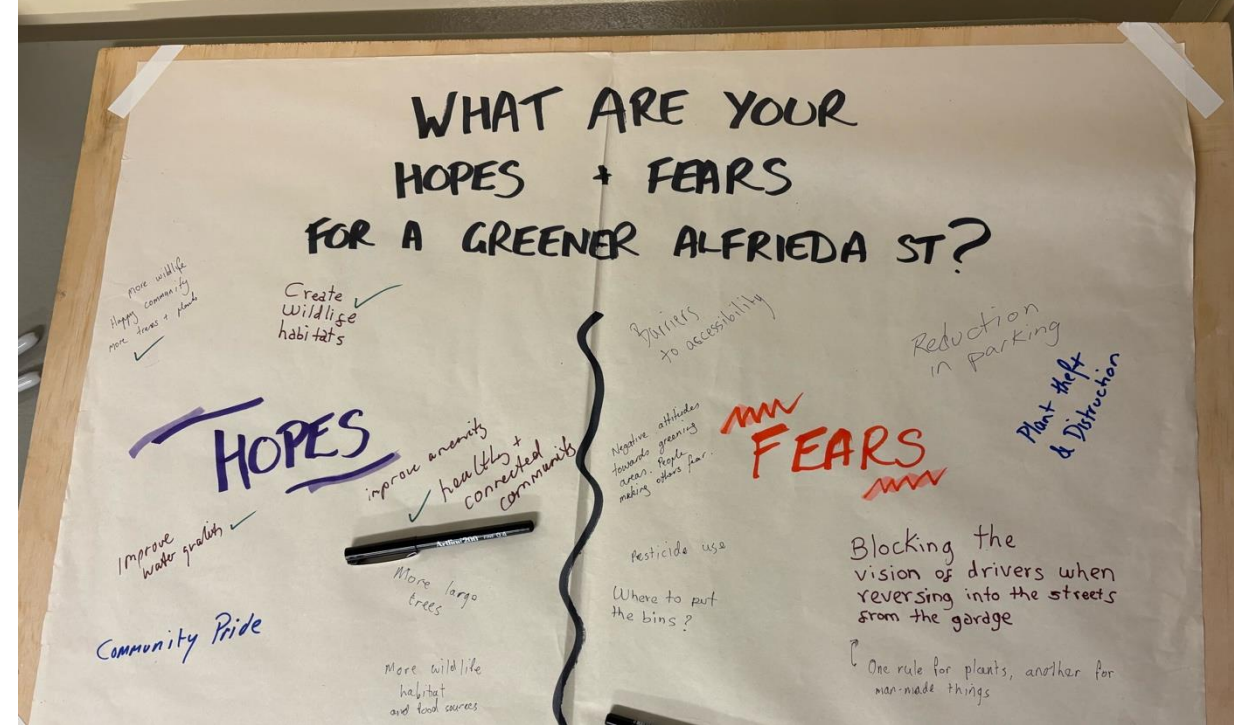 WHAT ARE YOUR
HOPES + FEARS
FOR A GREENER ALFRIEDA ST?
More wildlife
Happy community
More trees + plants
Create
wildlife
habitats
HOPES
improve amenity
healthy +
connected
community
Improve
water quality
More large
trees
Community Pride
More wildlife
habitat
and food sources
Barriers
to accessibility
Reduction
in parking
Plant theft
& Distruction
Negative attitudes
towards greening
areas. People
making others fear.
FEARS
Pesticide use
Where to put
the bins?
Blocking the
vision of drivers when
reversing into the streets
from the gardge
One rule for plants, another for
man-made things
Artline 200